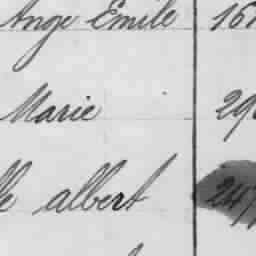 Ange Emile 16
Marie 29
albert 247